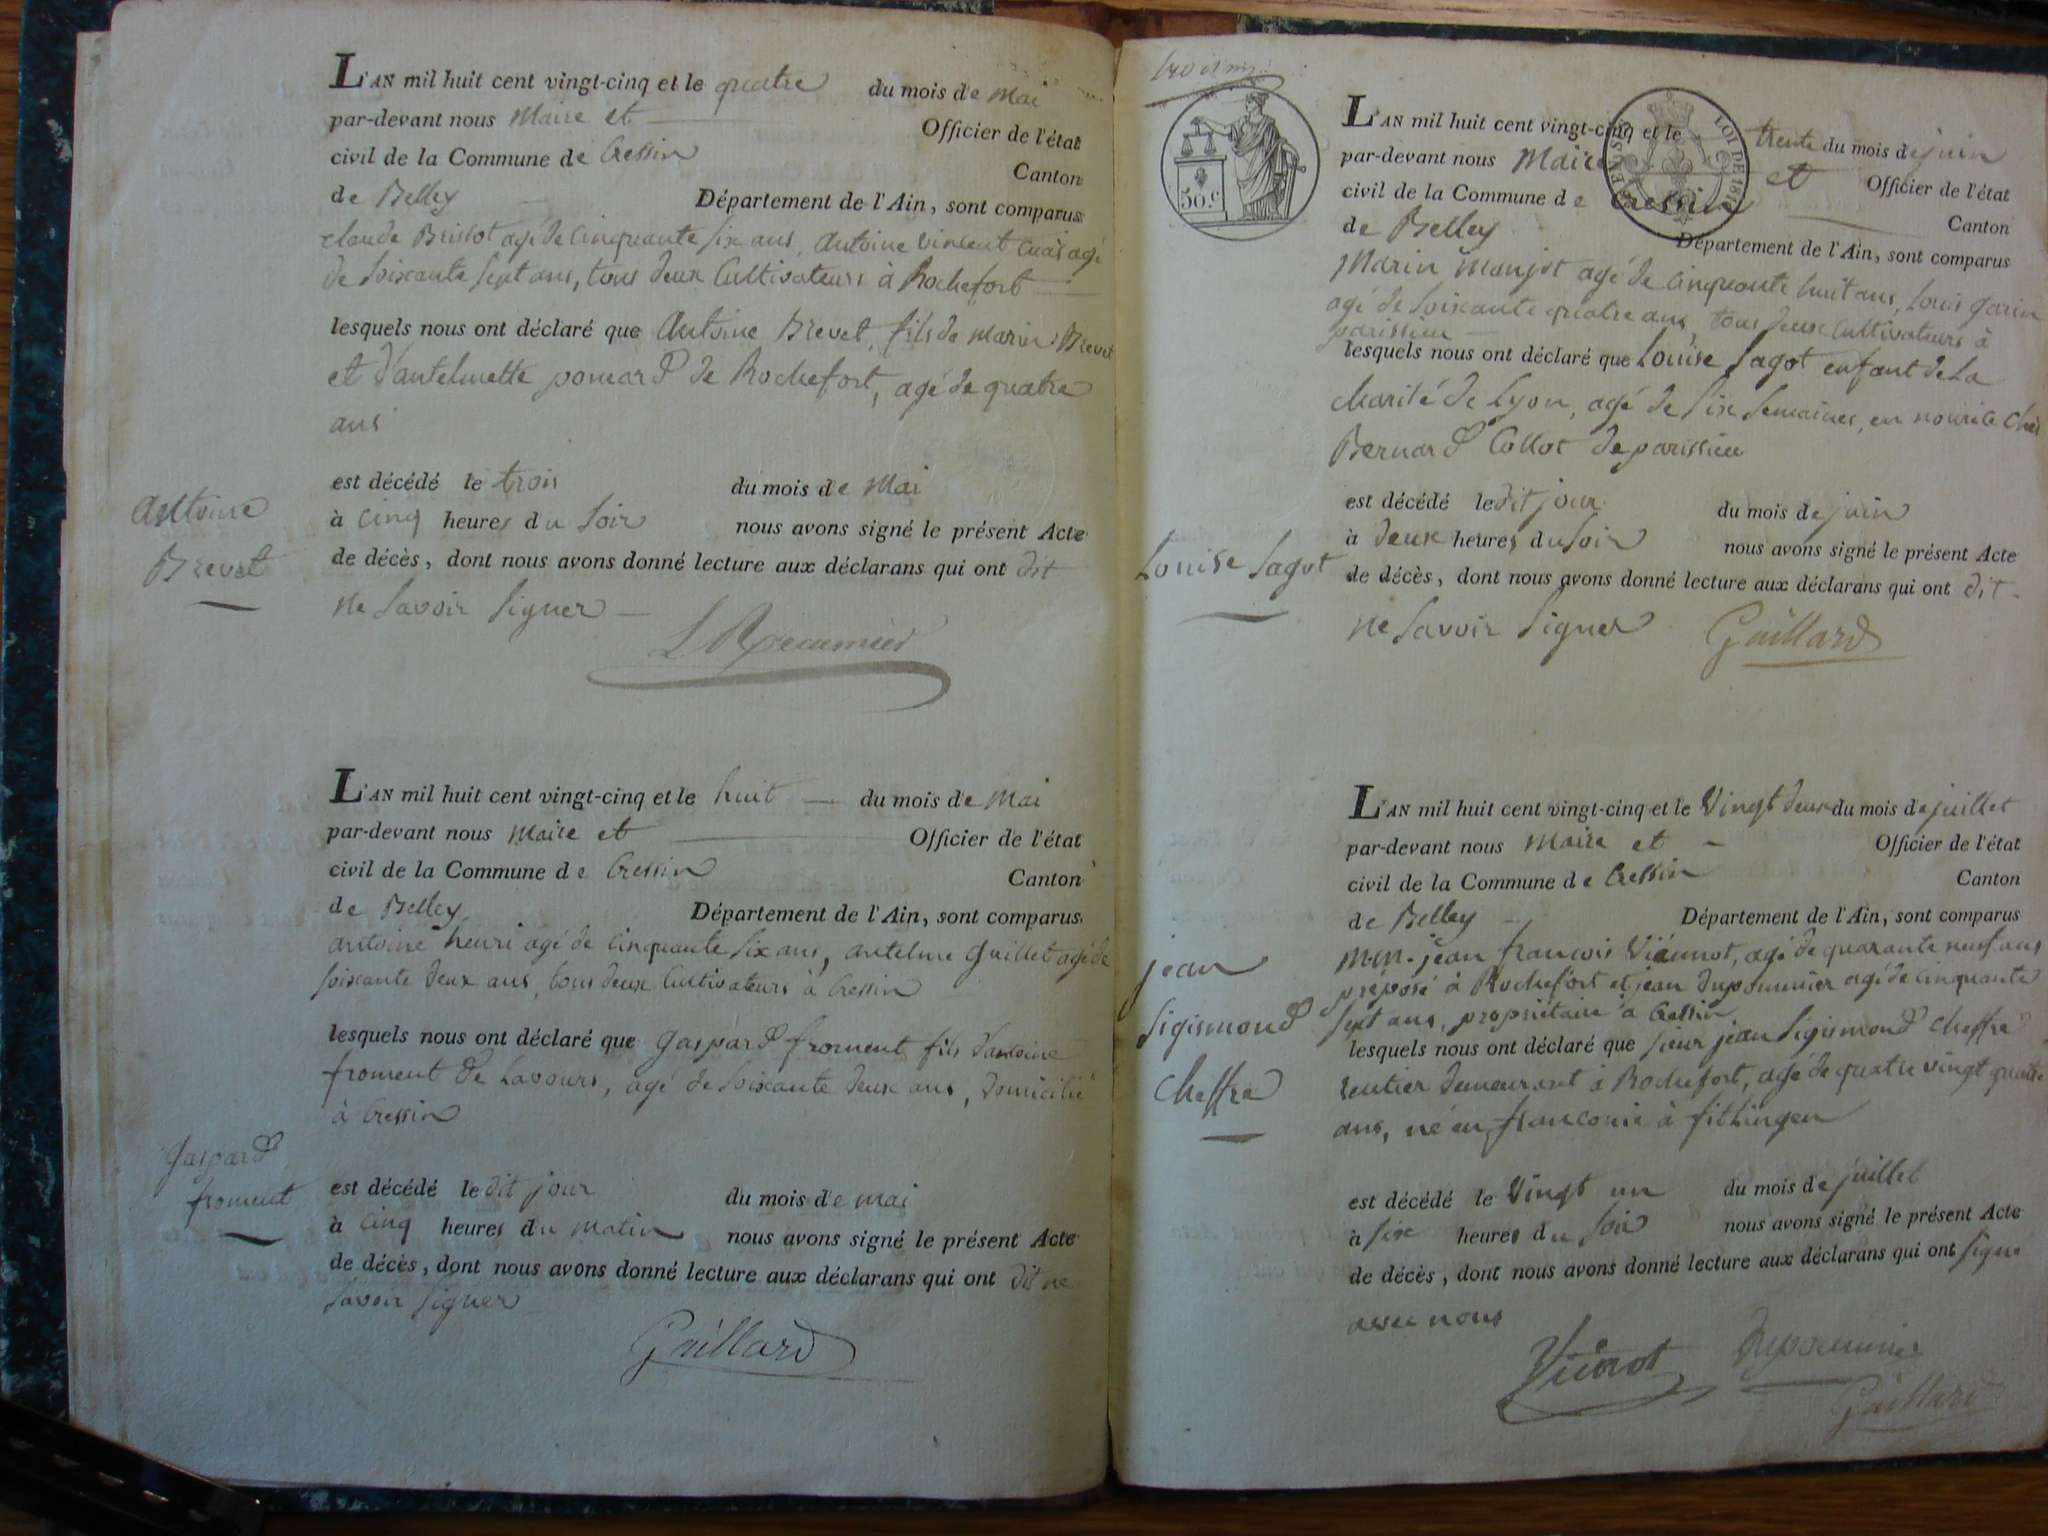 L'AN mil huit cent vingt-cinq et le quatre du mois de Mai
par-devant nous Maire et Officier de l'état
civil de la Commune de Cressin Canton
de Belley Département de l'Ain, sont comparus
claude Brissot agé de Cinquante six ans, Antoine vincent agé
de Soixante Sept ans, tous deux Cultivateurs à Rochefort
lesquels nous ont déclaré que Antoine Brevet, fils de marin Brevet
et d'antelmette pomard de Rochefort, agé de quatre
ans
est décédé le trois du mois de Mai
à Cinq heures du Soir nous avons signé le présent Acte
de décès, dont nous avons donné lecture aux déclarans qui ont dit
ne Savoir Signer
Antoine
Brevet
L'AN mil huit cent vingt-cinq et le huit du mois de Mai
par-devant nous Maire et Officier de l'état
civil de la Commune de Cressin Canton
de Belley Département de l'Ain, sont comparus
antoine henri agé de Cinquante Six ans, antelme Guillet agé de
Soixante deux ans, tous deux Cultivateurs à Cressin
lesquels nous ont déclaré que Gaspard froment fils d'antoine
froment de Lavours, agé de Soixante deux ans, domicilié
à Cressin
est décédé le dit jour du mois de mai
à Cinq heures du matin nous avons signé le présent Acte
de décès, dont nous avons donné lecture aux déclarans qui ont dit ne
Savoir Signer
Gaillard
Gaspard
froment
50.c
LOI DE 1816
L'AN mil huit cent vingt-cinq et le trente du mois de juin
par-devant nous Maire et Officier de l'état
civil de la Commune de Cressin Canton
de Belley Département de l'Ain, sont comparus
Marin Monjot agé de Cinquante huit ans, Louis Garin
agé de Soixante quatre ans, tous deux Cultivateurs à
parissieu
lesquels nous ont déclaré que Louise Sagot enfant de La
Charité de Lyon, agé de Six Semaines, en nourice Chés
Bernard Collot de parissieu
est décédé le dit jour du mois de juin
à deux heures du Soir nous avons signé le présent Acte
de décès, dont nous avons donné lecture aux déclarans qui ont dit
ne Savoir Signer Gaillard
Louise Sagot
L'AN mil huit cent vingt-cinq et le Vingt deux du mois de juillet
par-devant nous Maire et Officier de l'état
civil de la Commune de Cressin Canton
de Belley Département de l'Ain, sont comparus
M.M. jean francois Viennot, agé de quarante neuf ans
préposé à Rochefort et jean Dupommier agé de Cinquante
Sept ans, propriétaire à Cressin
lesquels nous ont déclaré que Sieur jean Sigismond Cheffre
rentier demeurant à Rochefort, agé de quatre vingt quatre
ans, né en franconie à fithingen
est décédé le Vingt un du mois de juillet
à Six heures du Soir nous avons signé le présent Acte
de décès, dont nous avons donné lecture aux déclarans qui ont Signé
avec nous
Gaillard
jean
Sigismond
Cheffre